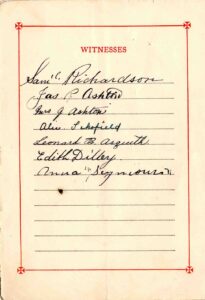 WITNESSES
Saml. Richardson
Jas P Ashton
Mrs J Ashton
Alec Schofield
Leonard B Asquith
Edith Dilley
Anna " Seymour